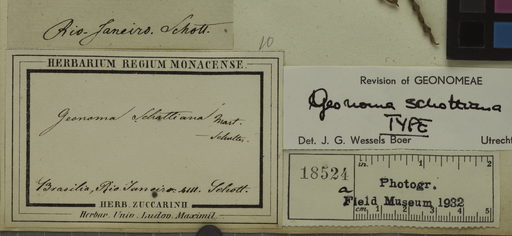 Rio-Janeiro. Schott.
10
HERBARIUM REGIUM MONACENSE.
Geonoma Schottiana Mart.
Brasilia, Rio Janeiro. Schott.
HERB. ZUCCARINII
Herbar. Univ. Ludov. Maximil.
Revision of GEONOMEAE
Geonoma schottiana
TYPE
Det. J. G. Wessels Boer Utrecht
18524
a
in. 1 2
Photogr.
Field Museum 1932
cm. 1 2 3 4 5